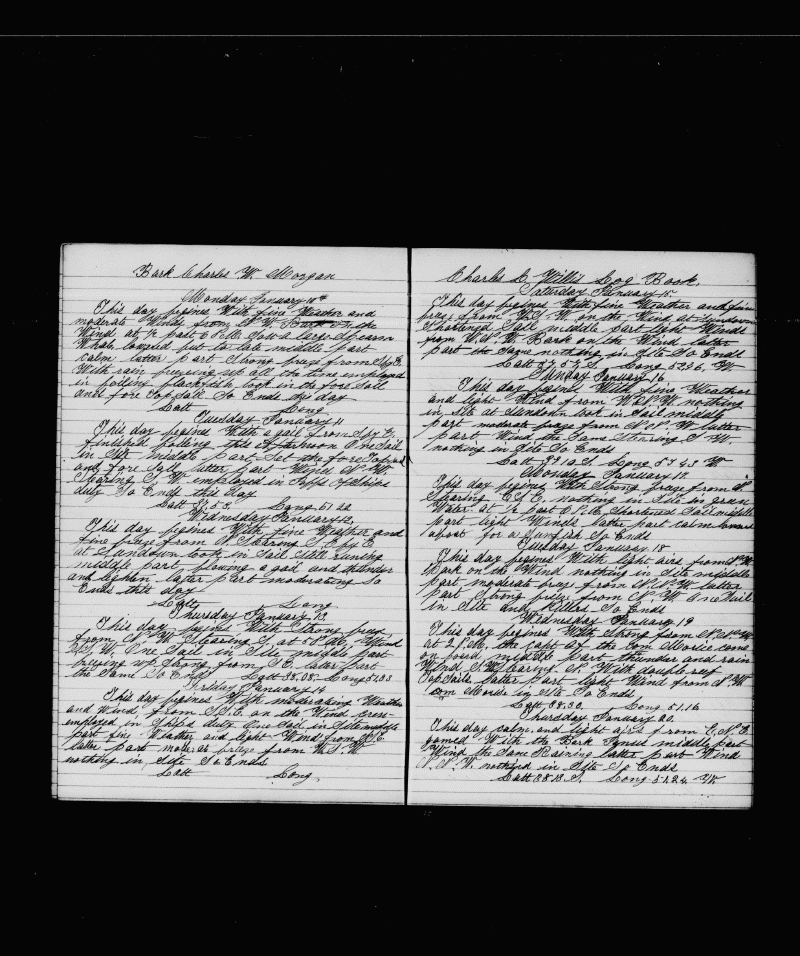 Bark Charles W. Morgan
Monday January 10th
This day begines With fine Weather and
moderate Winds from S W Bark on the
Wind at ½ past 6 P.M. Saw a large Spearm
Whale lowerd but to late middle part
calm latter part Strong breze from
With rain brezeing up all the time employed
in boiling blackfish took in the fore Sail
and fore topsail So Ends this day
Latt Long
Tuesday January 11
This day begines With a gail from
finished boiling this afternoon One Sail
in Site middle part Set the fore Topsail
and fore Sail latter part Wind N. W
Stearing S. W employed in Ships
duty So Ends this day
Latt 37.53. Long 51 22
Wednesday January 12
This day begines With fine Weather and
fine breze from N. Stearing S. by E
at Sundown took in Sail Still runing
middle part blowing a gail and thunder
and lighten latter part moderating So
Ends this day
Latt Long
Thursday January 13
This day begines With Strong breze
from N. W Stearing E. at 5 P. M. Wind
W. One Sail in Site middle part
brezeing up Strong from S.E. latter part
the Same So Ends Latt 38.08 Long 52.33
Friday January 14
This day begines With moderating Weather
and Wind from S.S.E. on the Wind crew
employed in Ships duty One Sail in Site middle
part fine Weather and light Wind from
latter part moderate breze from W.S.W
nothing in Site So Ends
Latt Long
Charles C Willis Log Book.
Saturday January 15
This day begines With fine Weather and fine
breze from W.S.W on the Wind at Sundown
Shortined Sail middle part light Winds
from W.S.W. Bark on the Wind latter
part the Same nothing in Site So Ends
Latt 37.57 S. Long 52.36. W
Sunday January 16
This day begines With fine Weather
and light Wind from W.S.W nothing
in Site at Sundown took in Sail middle
part moderate breze from N. N. W latter
part Wind the Same Stearing S. W.
nothing in Site So Ends
Latt 39.10 S. Long 53 43 W
Monday January 17
This day begines With Strong breze from
Stearing E.S.E. nothing in Site in green
Water. at ½ past 6 P.M. Shortined Sail middle
part light Winds latter part calm lowerd
a boat for a Sunfish So Ends
Tuesday January 18
This day begines With light airs from S.W.
Bark on the Wind nothing in Site middle
part moderate breze from N.N.W latter
part Strong breze from N. W. One Sail
in Site and Killers So Ends
Wednesday January 19
This day begines With Strong from
at 2 P.M. the capt of the Com Morice came
on board middle part thunder and rain
Wind Stearing S. W With double reef
TopSails latter part light Wind from N. W
Com Morice in Site So Ends
Latt 38.30. Long 51.16
Thursday January 20.
This day calm and light airs from E. N. E.
gamed With the Bark middle part
Wind the Same Raining latter part Wind
N. N. W nothing in Site So Ends
Latt 38 13 S. Long 51.24 W